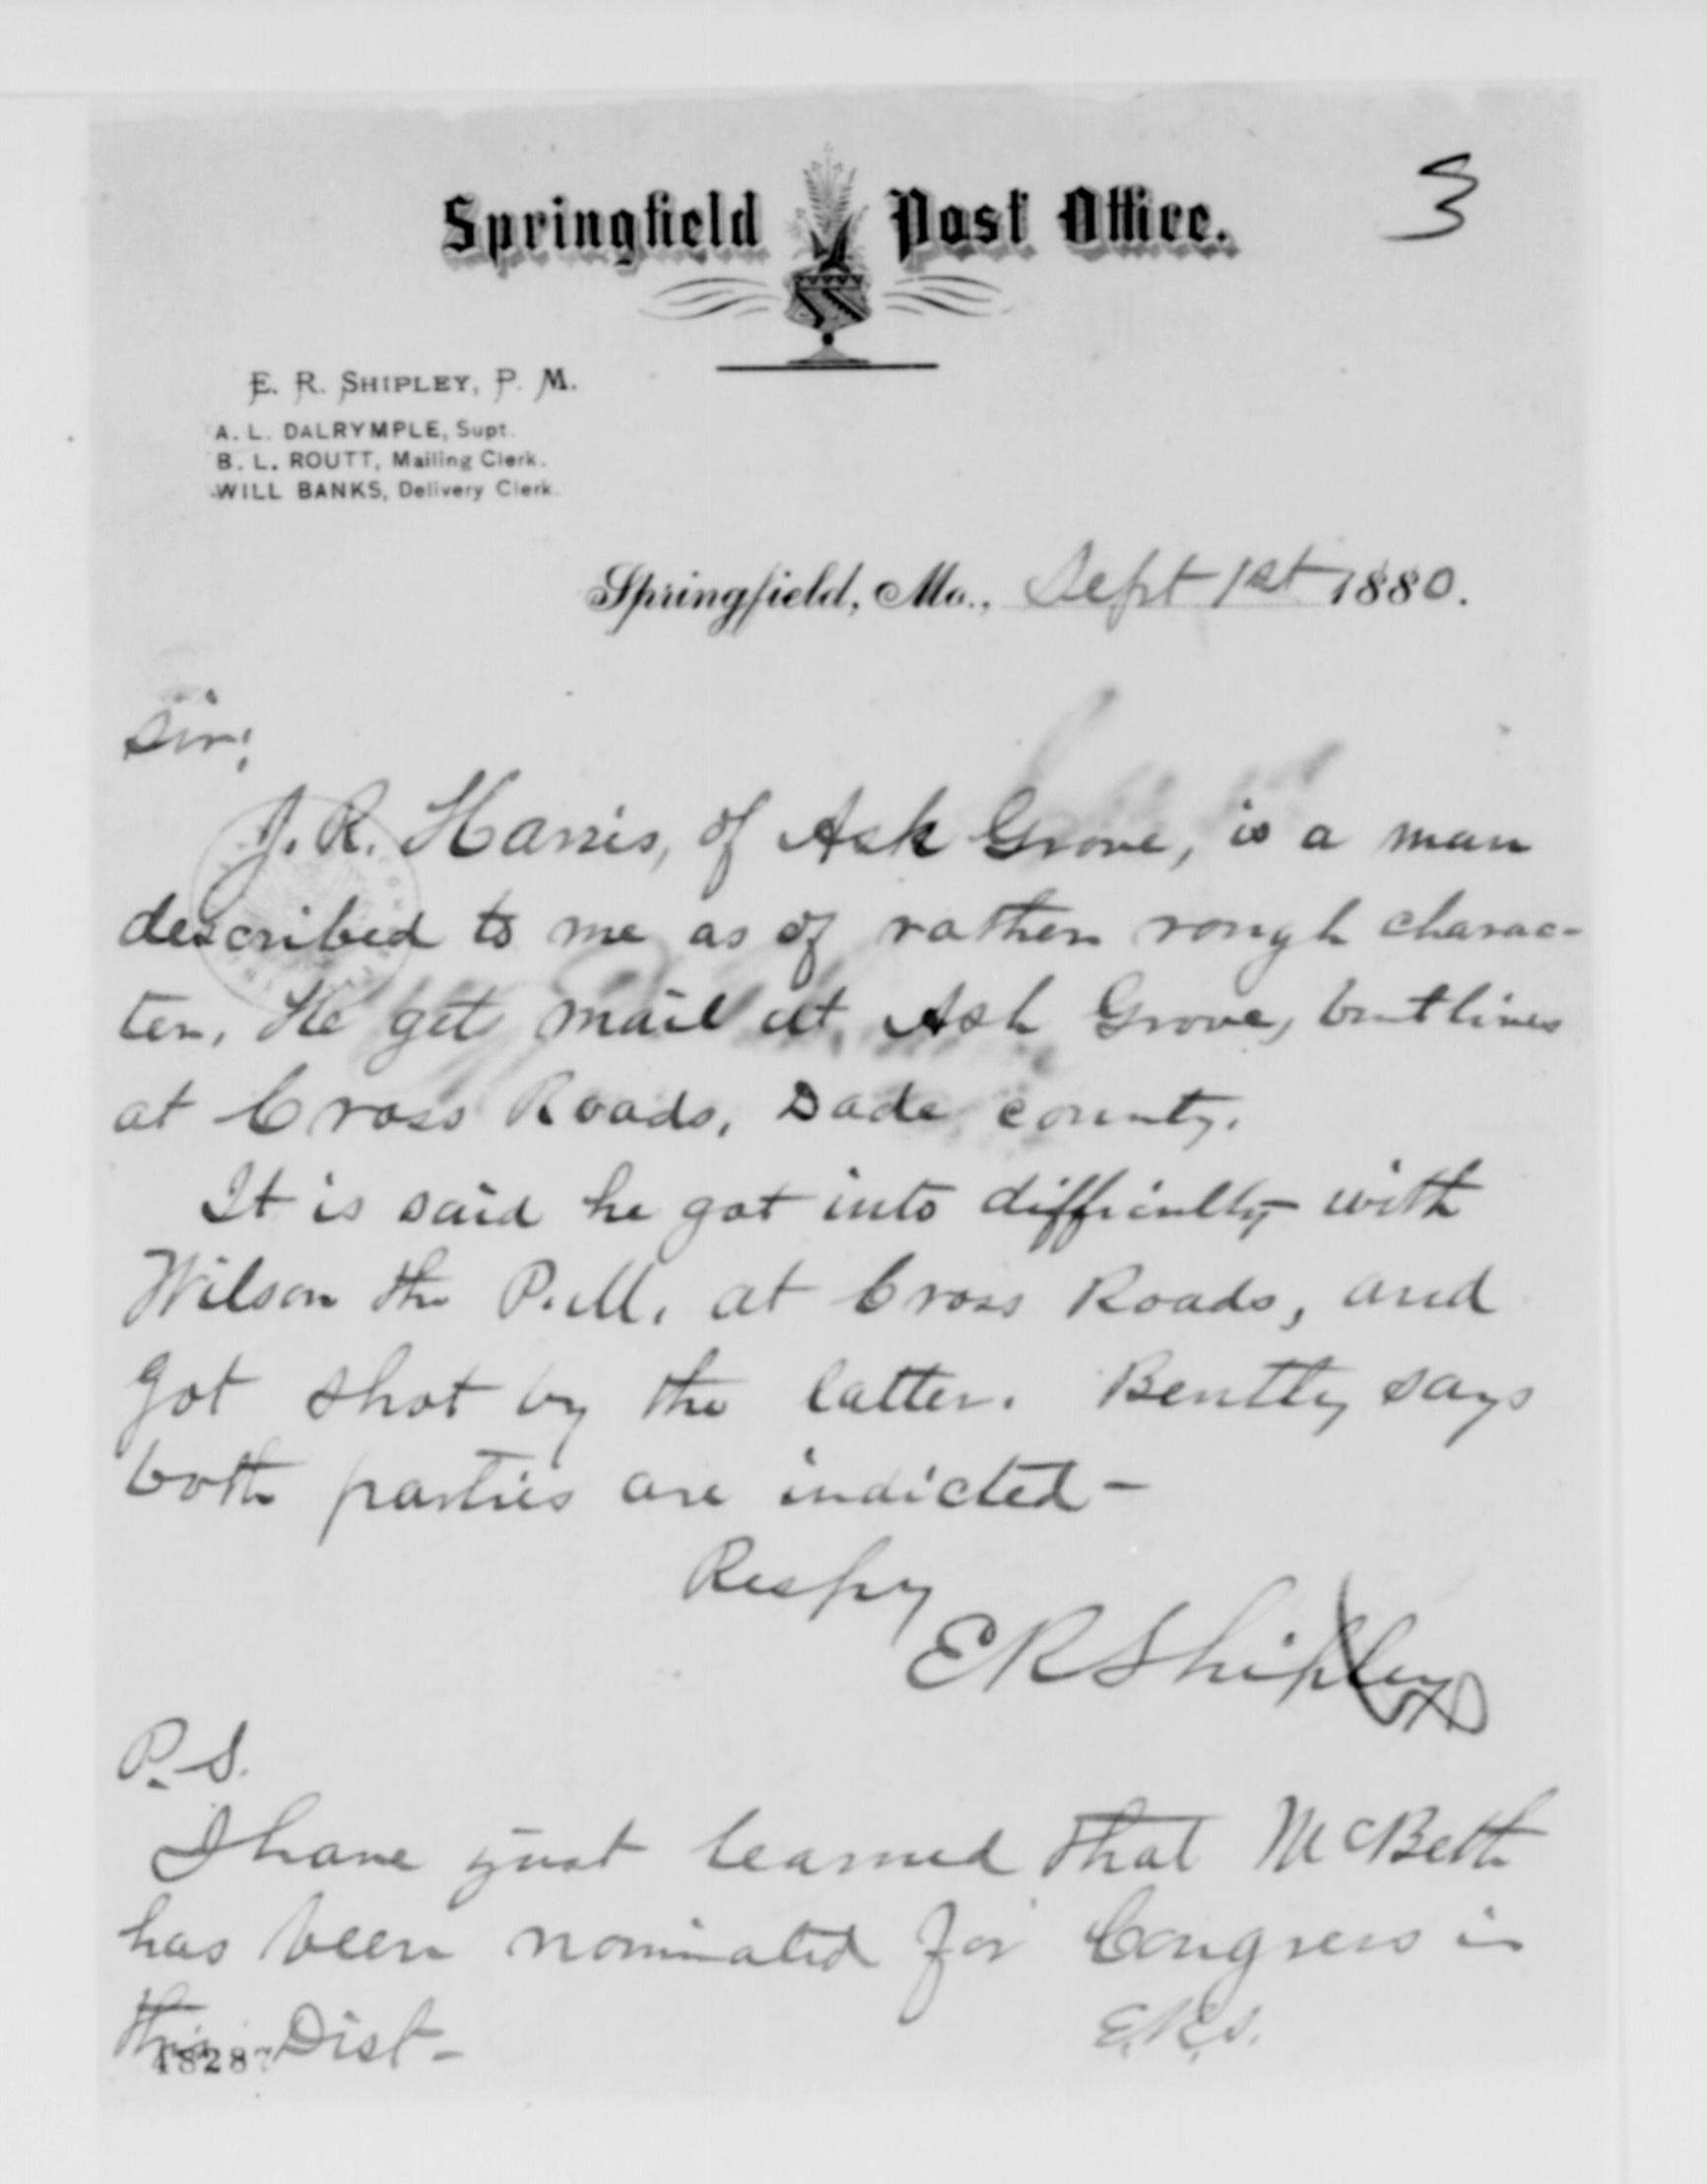 Springfield Post Office.
3
E. R. SHIPLEY, P. M.
A. L. DALRYMPLE, Supt.
B. L. ROUTT, Mailing Clerk.
WILL BANKS, Delivery Clerk.
Springfield, Mo., Sept 1st 1880.
Sir;
J. R. Harris, of Ash Grove, is a man
described to me as of rather rough charac-
ter. He gets mail at Ash Grove, but lives
at Cross Roads, Dade county.
It is said he got into difficulty with
Wilson the P.M. at Cross Roads, and
got shot by the latter. Bently says
both parties are indicted-
Respy
E R Shipley
P.S.
I have just learned that McBeth
has been nominated for Congress in
this Dist-
E.R.S.
48287